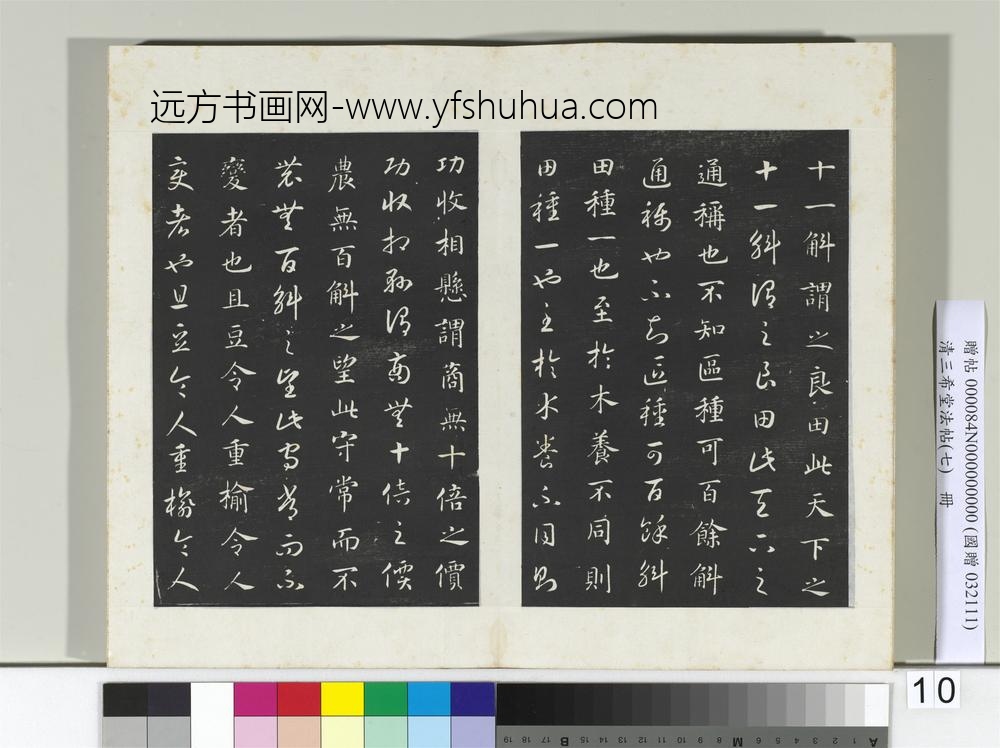 远方书画网-www.yfshuhua.com
十一斛謂之良田此天下之
十一斛謂之良田此天下之
通稱也不知區種可百餘斛
通稱也不知區種可百餘斛
田種一也至於木養不同則
田種一也至於水養不同則
功收相懸謂商無十倍之價
功收相懸謂商無十倍之價
農無百斛之望此守常而不
農無百斛之望此守常而不
變者也且豆令人重榆令人
變者也且豆令人重榆令人
贈帖 000084N000000000 (國贈 032111)
清三希堂法帖(七) 冊
10
A 1 2 3 4 5 6 M 8 9 10 11 12 13 14 15 B 17 18 19